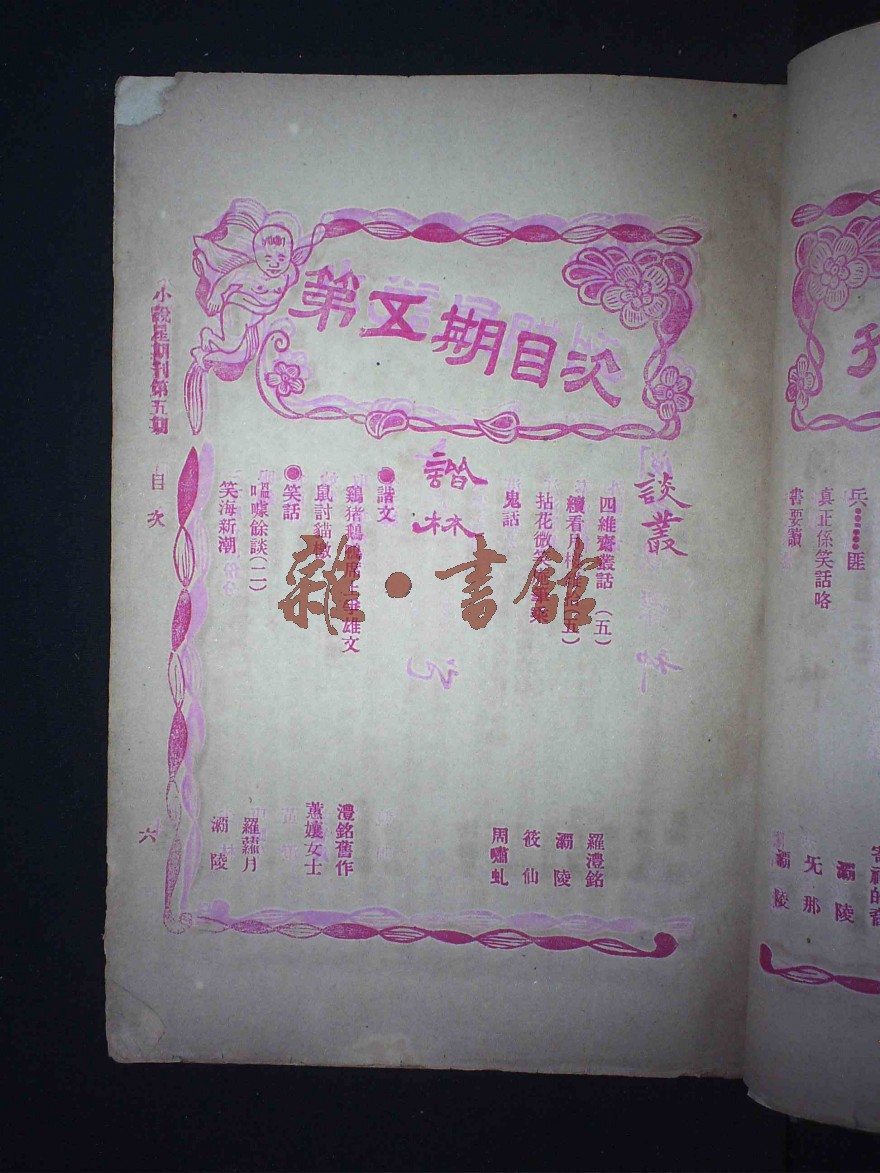 第五期目次
談叢
四維齋叢話（五）
羅澧銘
續看月樓
五）
灞陵
拈花微笑
筱仙
鬼話
周嘯虬
諧林
●諧文
鷄猪鵝鴨席上爭雄文
澧銘舊作
鼠討貓檄
蕙孃女士
◉笑話
嗢噱餘談（二）
羅蘿月
笑海新潮
灞陵
小說星期刊第五期
目次
六
雜·書館
兵……匪
真正係笑話咯
灞陵
旡那
書要讀
灞陵